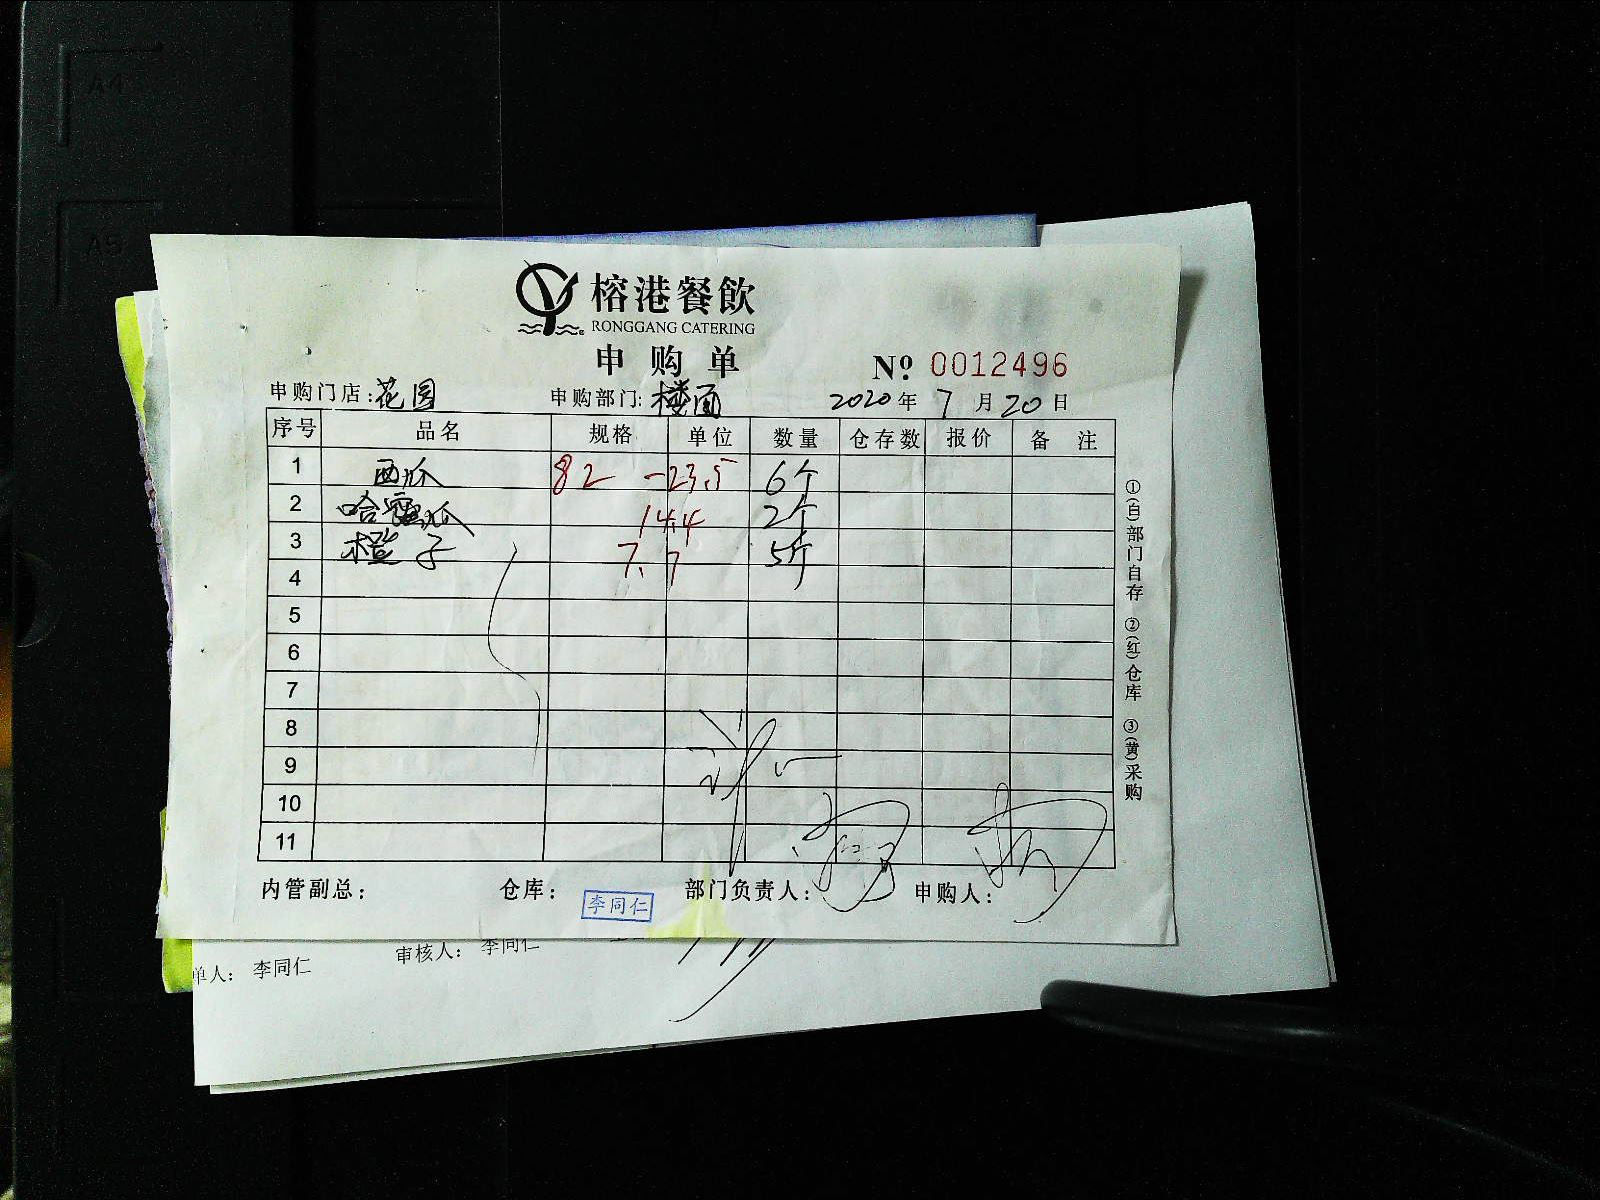 A4
A5
榕港餐飲
RONGGANG CATERING
申购单
Nº 0012496
申购门店:花园 申购部门:楼面 2020年7月20日
序号 品名 规格 单位 数量 仓存数 报价 备注
1 西瓜 82 -23.5 6个
2 哈密瓜 14.4 2个
3 橙子 7.7 5斤
4
5
6
7
8
9
10
11
①(白)部门自存 ②(红)仓库 ③(黄)采购
内管副总: 仓库: 李同仁 部门负责人: 申购人:
单人: 李同仁 审核人: 李同仁